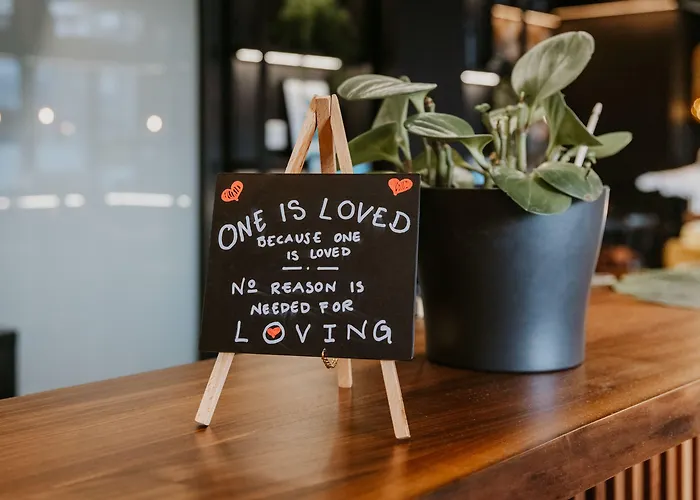 ONE IS LOVED
BECAUSE ONE
IS LOVED
No REASON IS
NEEDED FOR
LOVING